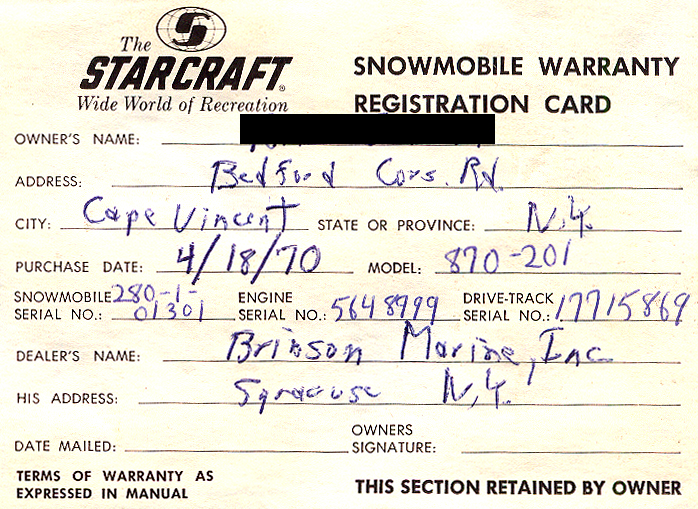 The
STARCRAFT®
Wide World of Recreation
SNOWMOBILE WARRANTY
REGISTRATION CARD
OWNER'S NAME:
ADDRESS: Bedford Cors. Rd.
CITY: Cape Vincent STATE OR PROVINCE: N.Y.
PURCHASE DATE: 4/18/70 MODEL: 870-201
SNOWMOBILE 280-1- ENGINE DRIVE-TRACK
SERIAL NO.: 01301 SERIAL NO.: 5648999 SERIAL NO.: 17715869
DEALER'S NAME: Brinson Marine, Inc
HIS ADDRESS: Syracuse N.Y.
DATE MAILED: OWNERS SIGNATURE:
TERMS OF WARRANTY AS
EXPRESSED IN MANUAL
THIS SECTION RETAINED BY OWNER